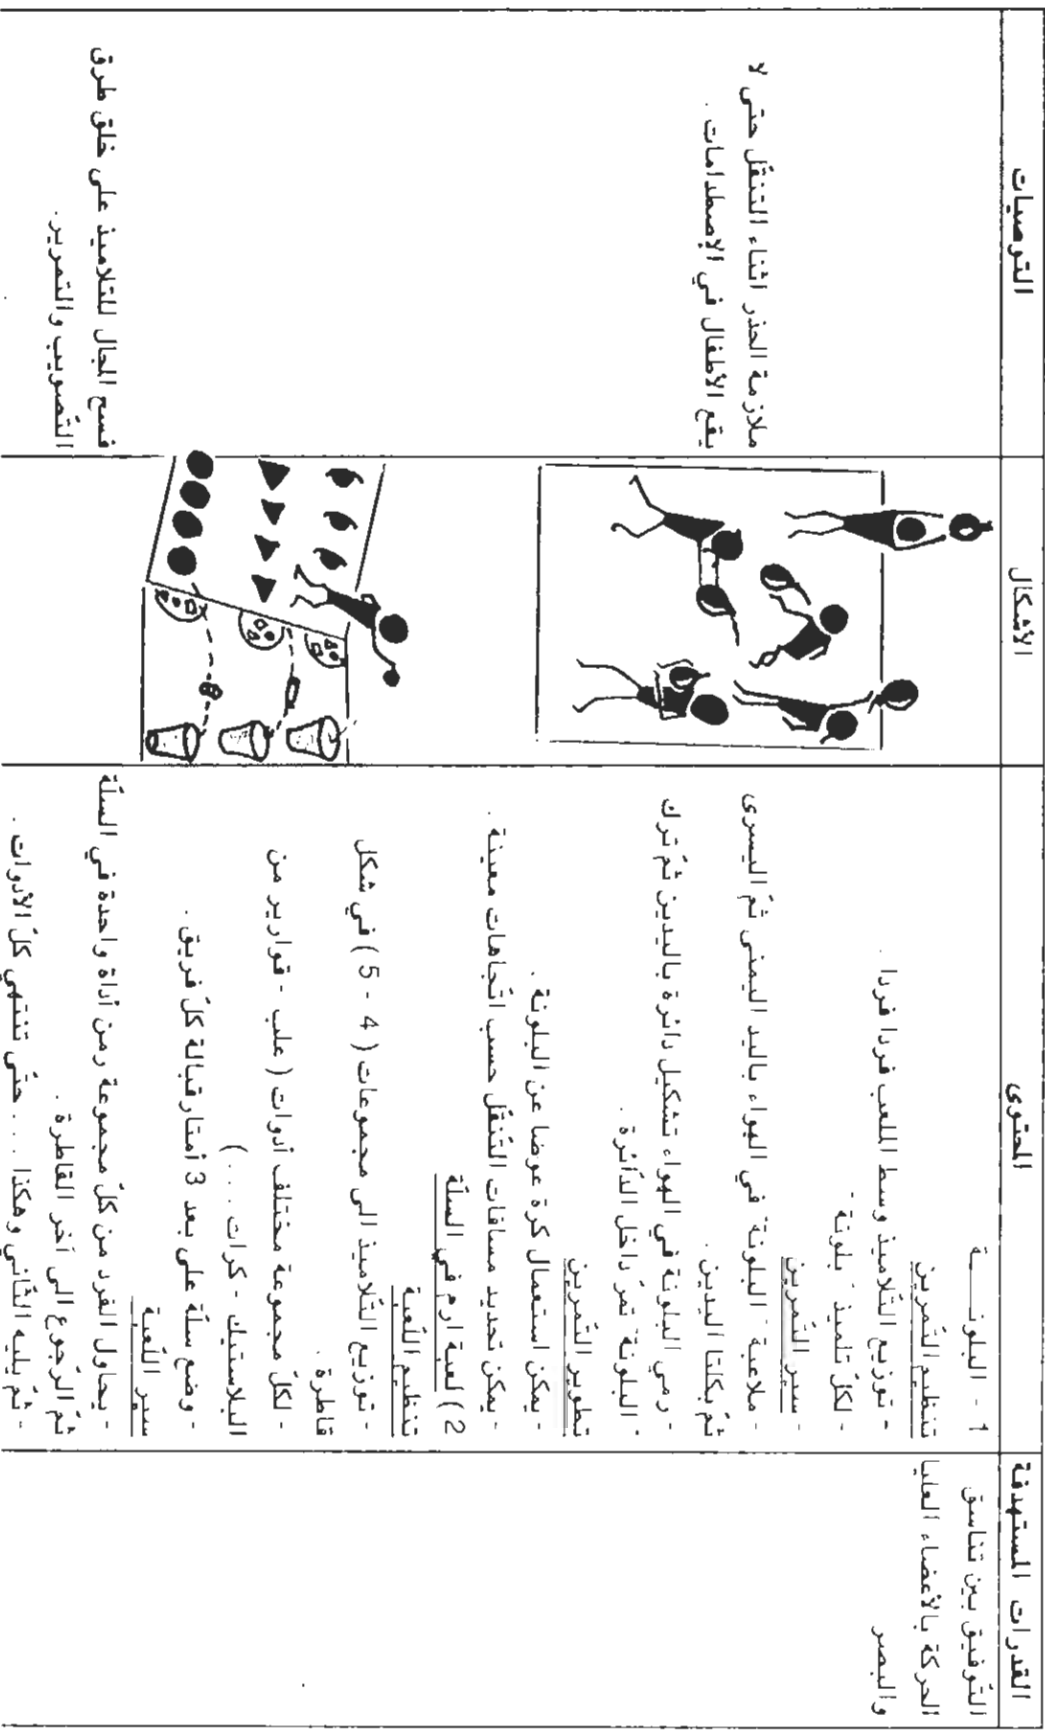 القدرات المستهدفة
المحتوى
الأشكال
التوصيات
التّوفيق بين تناسق
الحركة بالأعضاء العليا
والبصر
1 - البلونـــة
تنظيم التّمرين
- توزيع التّلاميذ وسط الملعب فردا فردا .
- لكلّ تلميذ " بلونة "
- سير التّمرين
- ملاعبة " البلونة " في الهواء باليد اليمنى ثمّ اليسرى
ثمّ بكلتا اليدين .
- رمي البلونة في الهواء تشكيل دائرة باليدين ثمّ ترك
" البلونة " تمرّ داخل الدّائرة .
تطوير التّمرين
- يمكن استعمال كرة عوضا عن البلونة .
- يمكن تحديد مسافات التّنقّل حسب اتّجاهات معينة .
2 ) لعبة ارم في السلّة
تنظيم اللّعبة
- توزيع التّلاميذ الى مجموعات ( 4 - 5 ) في شكل
قاطرة .
- لكلّ مجموعة مختلف أدوات ( علب - قوارير من
البلاستيك - كرات . . . )
- وضع سلّة على بعد 3 أمتار قبالة كلّ فريق .
سير اللّعبة
- يحاول الفرد من كلّ مجموعة رمن أداة واحدة في السلّة
ثمّ الرّجوع الى آخر القاطرة .
- ثمّ يليه الثّاني وهكذا . . . حتّى تنتهي كلّ الأدوات .
ملازمة الحذر اثناء التنقّل حتى لا
يقع الأطفال في الإصطدامات .
فسح المجال للتلاميذ على خلق طرق
التّصويب والتّمرير .